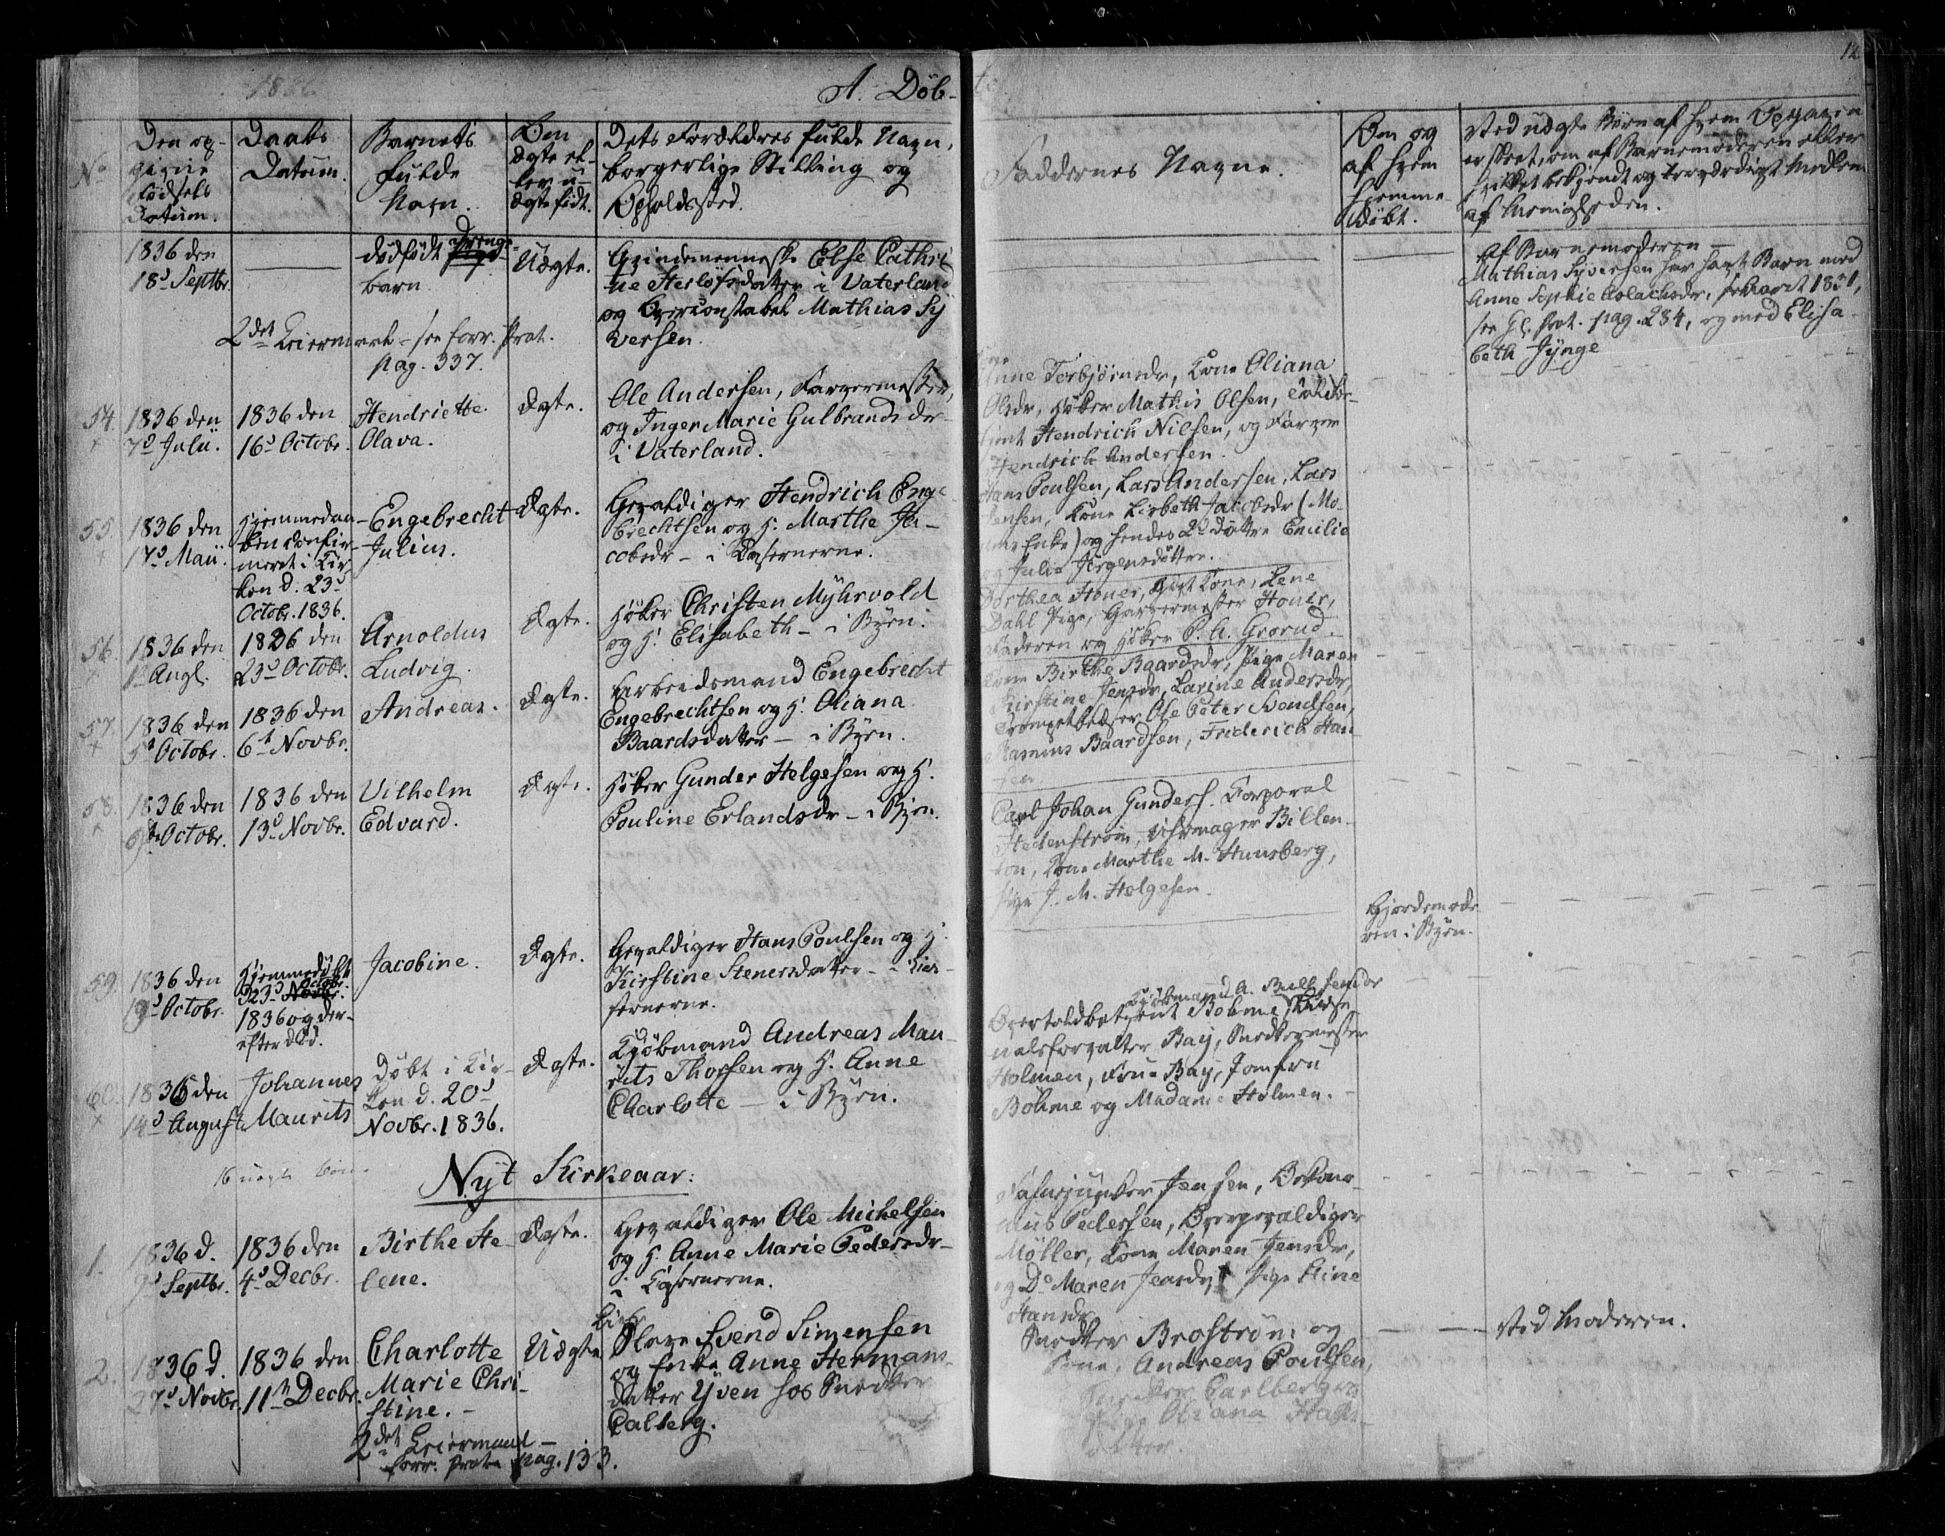 1836
A. Døb-
12
No
Den op-
givne
Fødsels
Datum.
Daabs
Datum.
Barnets
fulde
Navn.
Om
Ægte el-
ler u-
ægte født.
Dets Forældres fulde Navn,
borgerlige Stilling og
Opholdssted.
Faddernes Navne.
Om og
af hvem
hjemme-
døbt.
Ved uægte Børn af hvem Opgaven
er skeet, om af Barnemoderen eller
af Menigheden.
1836 den
18d Septbr.
dødfødt Drenge-
barn
Uægte.
Qvindemenneske Else Cathri-
ne Herløfsdatter i Vaterland
og Overconstabel Mathias Sy-
versen.
Af Barnemoderen —
Mathias Syversen har havt Barn med
Anne Sophie Aslachsdr. 1831,
see Gl. Prot. pag. 284, og med Elisa-
beth Jynge
2det Leiermaal - see forr. Prot.
pag. 337.
54.
1836 den
7d Julii.
1836 den
16d Octobr.
Hendriette
Olava.
Ægte.
Ole Andersen, Farvermester,
og Inger Marie Gulbrandsdr
i Vaterland.
Anne Torbjørnsdr, Kone Oliana
Olsdr, Høker Mathis Olsen,
Hendrich Nilsen, og Farver
Hendrich Andersen.
55.
1836 den
17d Maii.
Hjemmedaa-
ben confir-
meret i Kir-
ken d. 23d
Octobr. 1836.
Engebrecht
Julius.
Ægte.
Gevaldiger Hendrich Enge-
brechtsen og H. Marthe Ja-
cobsdr - i Casernerne.
Hans Poulsen, Lars Andersen, Lars
Jensen, Kone Lisbeth Jacobsdr (Mo-
Enke) og hendes 2de Døttre Emilie
og Julie Jørgensdøttre.
56.
1836 den
1d Augl.
1836 den
23d Octobr.
Arnoldus
Ludvig.
Ægte.
Høker Christen Myhrvold
og H. Elisabeth - i Byen.
Dorthea Honer, gift Kone, Lene
Dahl Pige, Garvermester Honer,
Faderen og Høker P. A. Grorud.
57.
1836 den
5t Octobr.
1836 den
6t Novbr.
Andreas.
Ægte.
Arbeidsmand Engebrecht
Engebrechtsen og H. Oliana
Baardsdatter - i Byen.
Kone Birthe Baardsdr, Pige Maren
Kirstine Jensdr, Larine Andersdr,
Trompetblæser Ole Peter Svendsen,
Rasmus Baardsen, Friderich Han-
sen.
58.
1836 den
Octobr.
1836 den
13d Novbr.
Vilhelm
Edvard.
Ægte.
Høker Gunder Helgesen og H.
Pouline Erlandsdr - i Byen.
Carl Johan Gunders. Corporal
Hedenstrøm, Uhrmager Billen-
ton, Kone Marthe M. Hunsberg,
Pige J. M. Helgesen.
59.
1836 den
19d Octobr.
Hjemmedøbt
d. 23d Octobr.
1836 og der-
efter død.
Jacobine.
Ægte.
Gevaldiger Hans Poulsen og H.
Kirstine Stenersdatter - i Cas-
sernerne.
Gjordemode-
ren i Byen.
60.
1836 den
14d August
Johannes
Maurits
Døbt i Kir-
ken d. 20d
Novbr. 1836.
Ægte.
Kjøbmand Andreas Mau-
rits Thorsen og H. Anne
Charlotte - i Byen.
Kjøbmand A. Bull senior
Overtoldbetjent Böhme,
Bay, Snedkermester
Holmen, Frue Bay, Jomfru
Böhme og Madame Holmen.
16 uægte Børn.
Nyt Kirkeaar:
1.
1836 d.
9d Septbr.
1836 den
4d Decbr.
Birthe He-
lene.
Ægte.
Gevaldiger Ole Michelsen
og H. Anne Marie Pedersdr -
i Casernerne.
Fanejunker Jensen,
Pedersen, Overgevaldiger
Møller, Kone Maren Jensdr,
og Do Maren Jensdr, Pige Stine
Hansdr
2.
1836 d.
27d Novbr.
1836 den
11te Decbr.
Charlotte
Marie Chri-
stine. -
Uægte
Slave Svend Simensen
og Enke Anne Hermans-
datter Yven hos Snedker
Calberg.
Snedker Brostrøm og
Kone, Andreas Poulsen,
Snedker Carlberg og
Pige Oliana Hans-
datter
ved Moderen.
2det Leiermaal -
forr. Prot. pag. 133.